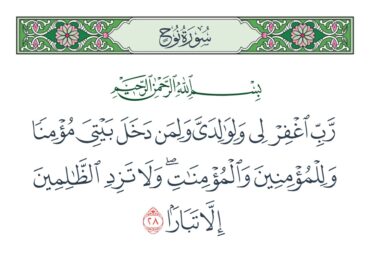 سُورَةُ نُوحٍ
بِسْمِ ٱللَّهِ ٱلرَّحْمَٰنِ ٱلرَّحِيمِ
رَّبِّ ٱغْفِرْ لِى وَلِوَٰلِدَىَّ وَلِمَن دَخَلَ بَيْتِىَ مُؤْمِنًا
وَلِلْمُؤْمِنِينَ وَٱلْمُؤْمِنَٰتِۖ وَلَا تَزِدِ ٱلظَّٰلِمِينَ
إِلَّا تَبَارًۢا ٢٨